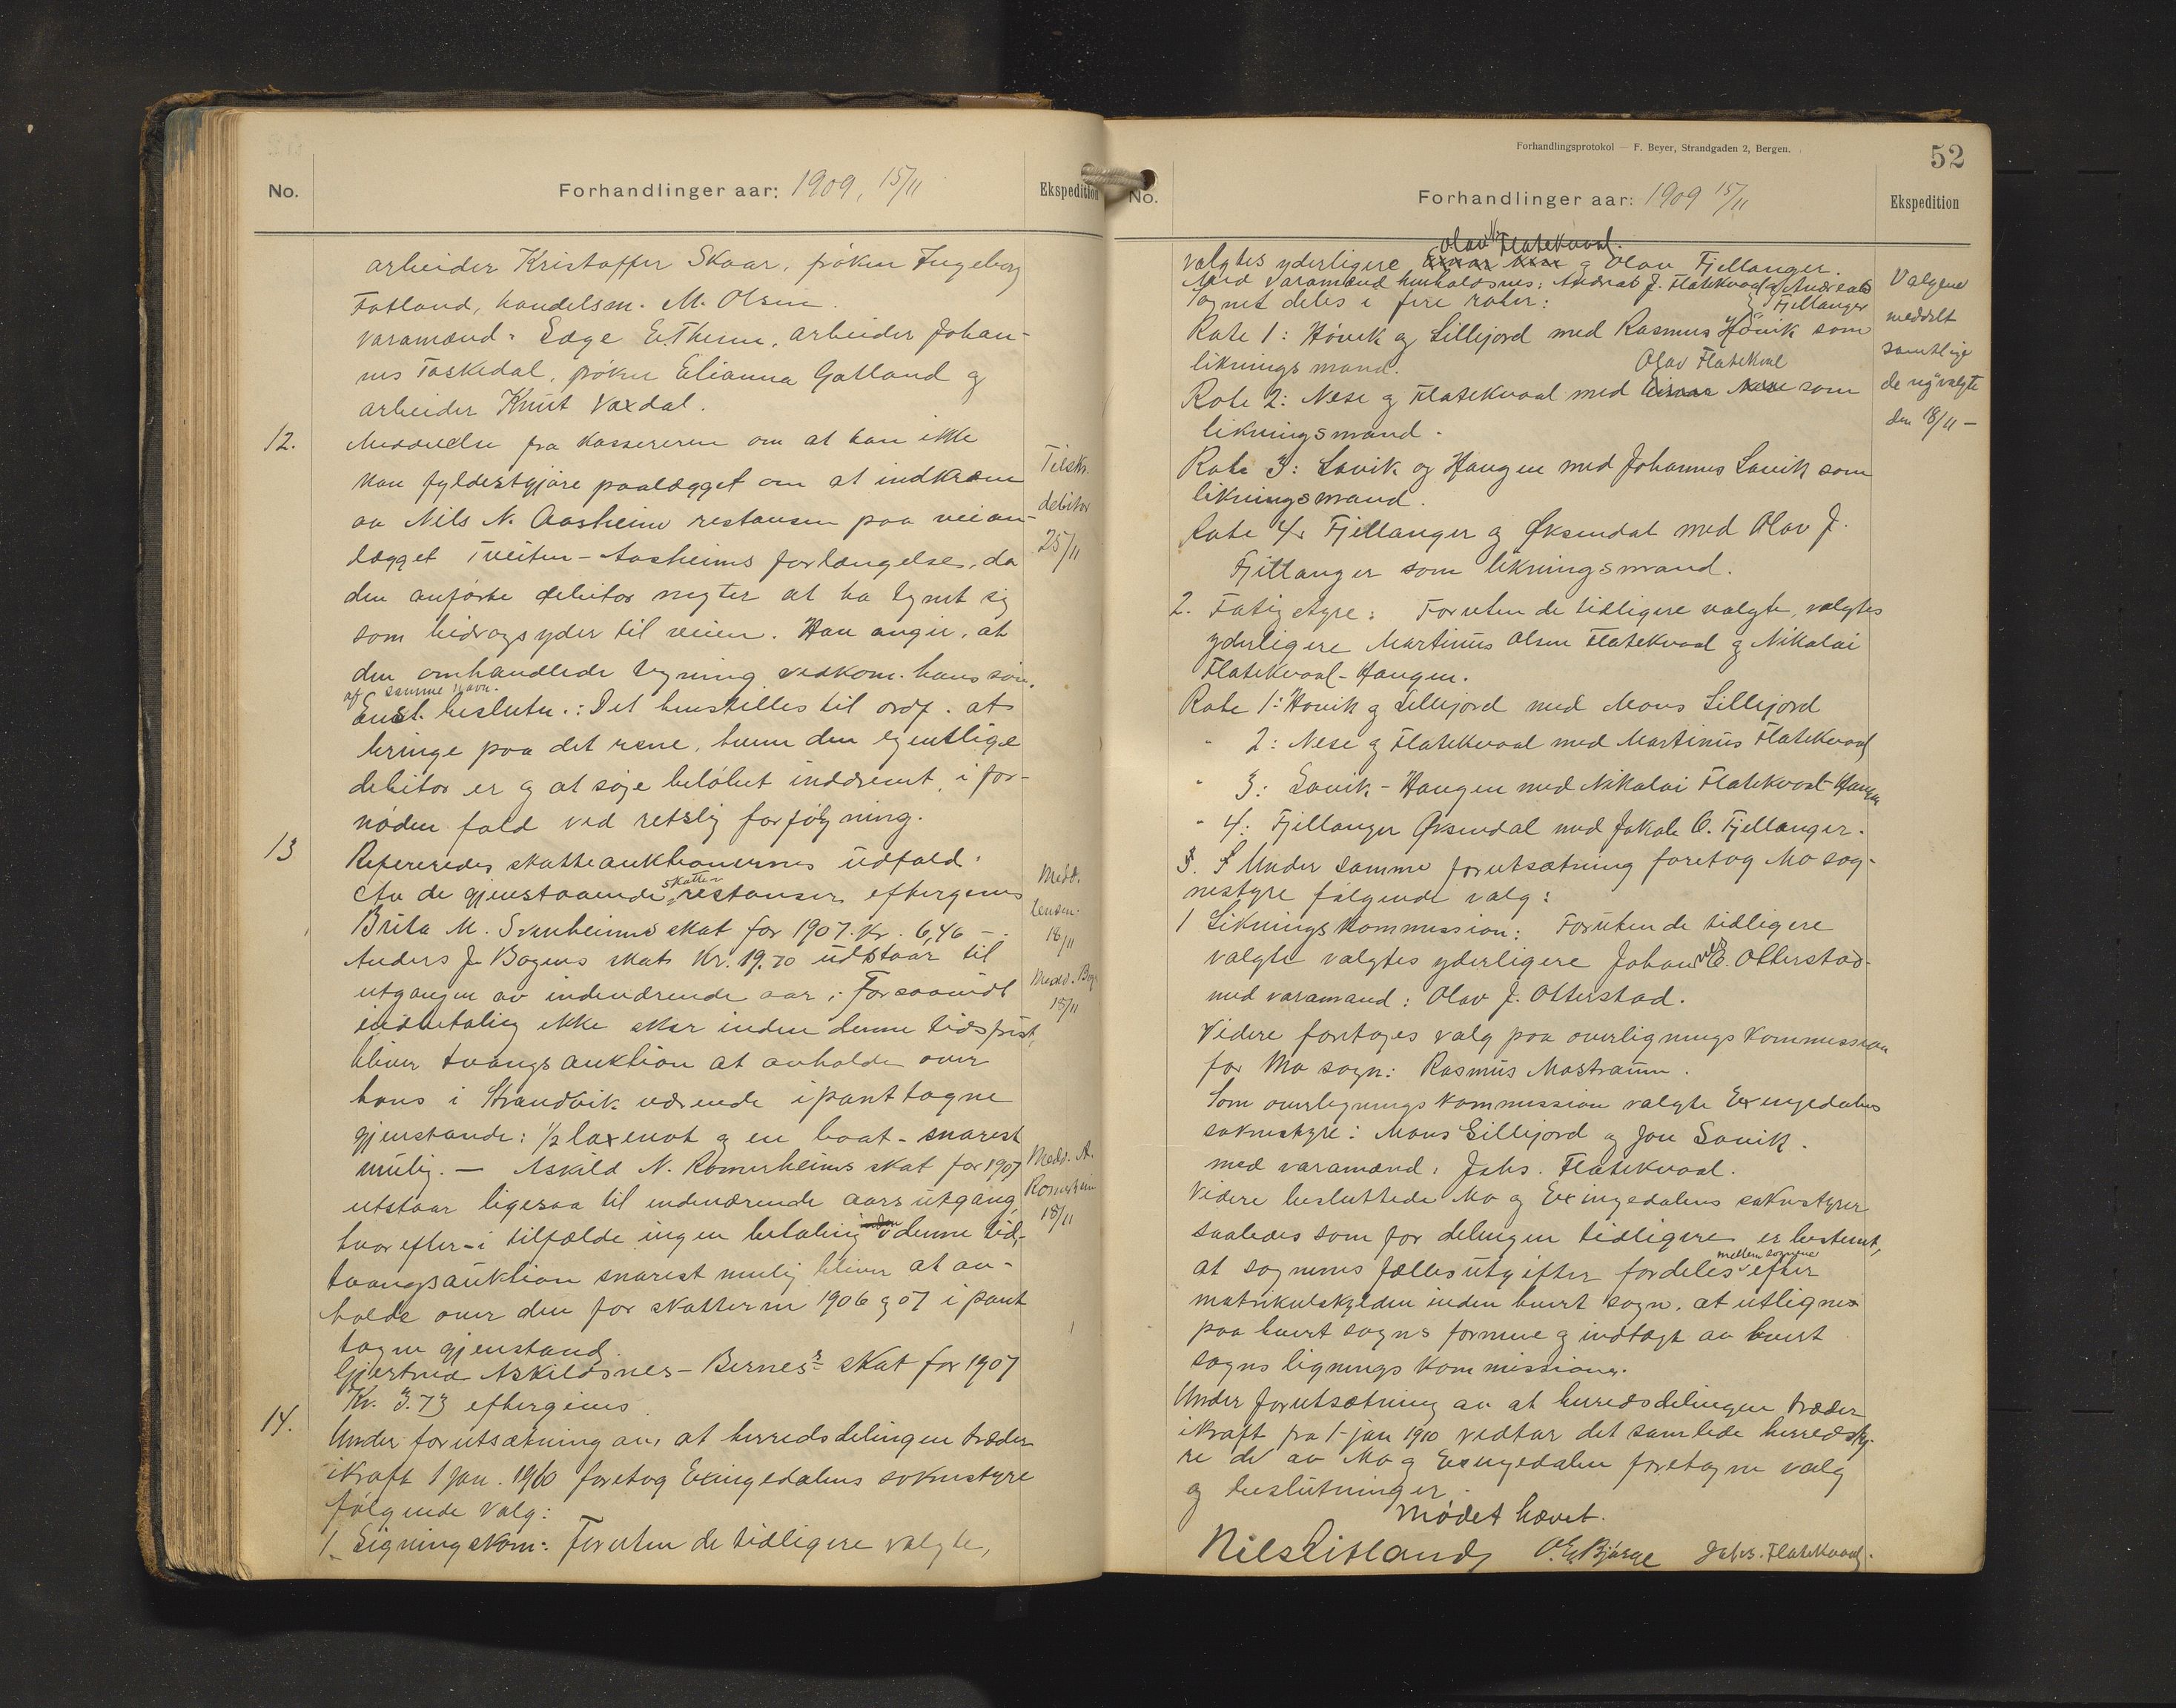 No.
Forhandlinger aar: 1909, 15/11
Ekspedition
arbeider Kristoffer Skaar, frøken Ingeborg
Fotland, handelsm. M. Olsen.
varamænd: Læge E. Thesen, arbeider Johan-
nes Toskedal, frøken Elianna Gatland og
arbeider Knut Vaxdal.
12. Meddelelse fra kassereren om at han ikke
kan fyldestgjøre paalægget om at indkræve
av Nils N. Aasheim restansen paa veian-
lægget Tveiten-Aasheims forlængelse, da
den anførte debitor negter at ha tegnet sig
som bidragsyder til veien. Han angir, at
den omhandlede tegning vedkom. hans søn
af samme navn.
Enst. beslutn.: Det henstilles til ordf. at
bringe paa det rene, hvem den egentlige
debitor er og at søge beløbet inddrevet, i for-
nøden fald ved retslig forfølgning.
Tilskr.
debitor
25/11
13 Refereredes skatteauktionernes udfald.
Av de gjenstaaende skatterestanser eftergives
Brita M. Svenheims skat for 1907. Kr. 6,46 -.
Anders J. Bogens skat Kr. 19.70 udstaar til
utgangen av indeværende aar; forsaavidt
indbetaling ikke sker inden denne tidsfrist,
bliver tvangsauktion at avholde over
hans i Strandvik værende i pant tagne
gjenstande: 1/2 laxenot og en baat - snarest
mulig. — Askild N. Romerheims skat for 1907
utstaar ligesaa til indeværende aars utgang,
hvorefter - i tilfælde ingen betaling denne tid,
tvangsauktion snarest mulig bliver at av-
holde over den for skatterne 1906 og 07 i pant
tagne gjenstand.
Gjertrud Askildsnes-Bernes's skat for 1907
Kr. 3.73 eftergives.
Medd.
lensm.
18/11
Medd. Bog.
18/11
Medd. A.
Romerheim
18/11
14. Under forutsætning av, at herredsdelingen træder
ikraft 1 jan. 1910 foretog Exingedalens soknestyre
følgende valg:
1. Ligningskom: Foruten de tidligere valgte,
Forhandlingsprotokol — F. Beyer, Strandgaden 2, Bergen.
52
No.
Forhandlinger aar: 1909 15/11
Ekspedition
Olav Flatekvaal.
valgtes yderligere Einar Nese og Olav Fjellanger.
Med varamænd henholdsvis: Andreas J. Flatekvaal og Andreas
Fjellanger
Sognet deles i fire roter:
Rote 1: Høvik og Lillejord med Rasmus Høvik som
likningsmand.
Olav Flatekval
Rote 2: Nese og Flatekvaal med Einar Nese som
likningsmand.
Rote 3: Lavik og Haugen med Johannes Lavik som
likningsmand.
Rote 4: Fjellanger og Øksendal med Olav J.
Fjellanger som likningsmand.
Valgene
meddelt
samtlige
de nyvalgte
den 18/11 -
2. Fatigstyre: Foruten de tidligere valgte, valgtes
yderligere Martinus Olsen Flatekvaal og Nikolai
Flatekvaal-Haugen.
Rote 1: Høvik og Lillejord med Mons Lillejord
" 2: Nese og Flatekvaal med Martinus Flatekvaal
" 3: Lavik-Haugen med Nikolai Flatekvaal-Haugen
" 4: Fjellanger Øksendal med Jakob O. Fjellanger.
3. Under samme forutsætning foretog Mo sog-
nestyre følgende valg:
1 Likningskommission: Foruten de tidligere
valgte valgtes yderligere Johan E. Otterstad
med varamand: Olav J. Otterstad.
Videre foretoges valg paa overligningskommission
for Mo sogn: Rasmus Mostraum.
Som overligningskommission valgte Exingedalens
soknestyre: Mons Lillejord og Jon Lavik.
med varamænd: Johs. Flatekvaal.
Videre besluttede Mo og Exingedalens soknestyrer
saaledes som før delingen tidligere er bestemt,
at sognenes fællesutgifter fordeles mellem sognene efter
matrikulskylden inden hvert sogn, at utlignes
paa hvert sogns formue og indtægt av hvert
sogns ligningskommissioner.
Under forutsætning av at herredsdelingen træder
ikraft fra 1 jan 1910 vedtar det samlede herredsty-
re de av Mo og Exingedalen foretagne valg
og beslutninger.
Mødet hævet.
Nils Litland O. E. Bjørge Johs. Flatekvaal.